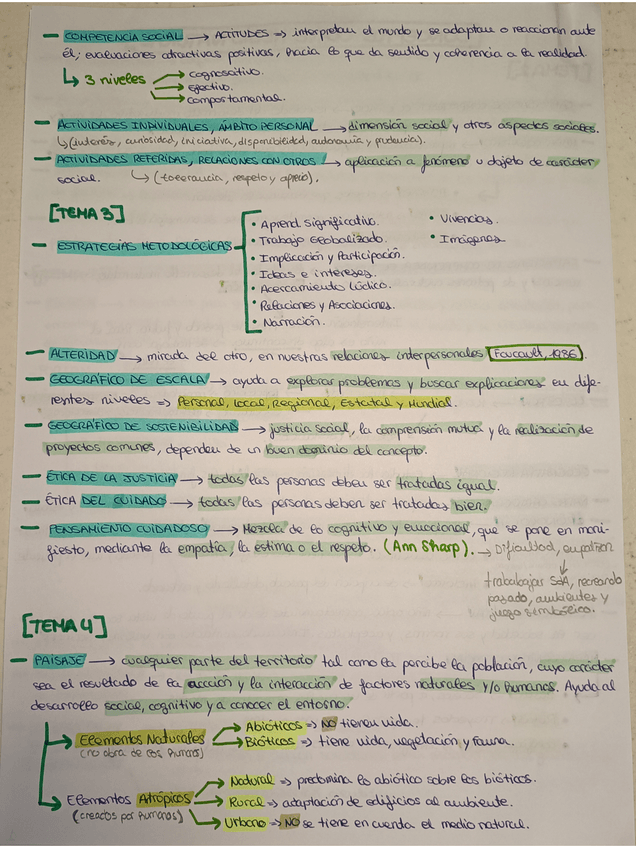 — COMPETENCIA SOCIAL → ACTITUDES ⇒ interpretan el mundo y se adaptan o reaccionan ante
él; evaluaciones atractivas positivas, hacia lo que da sentido y coherencia a la realidad.
↳ 3 niveles → cognoscitivo.
→ afectivo.
→ comportamental.
— ACTIVIDADES INDIVIDUALES, ÁMBITO PERSONAL → dimensión social y otros aspectos sociales.
↳ (interés, curiosidad, iniciativa, disponibilidad, autonomía y prudencia).
— ACTIVIDADES REFERIDAS, RELACIONES CON OTROS → aplicación a fenómeno u objeto de carácter
social. ↳ (tolerancia, respeto y aprecio).
[TEMA 3]
— ESTRATEGIAS METODOLÓGICAS
• Aprend. Significativo.
• Trabajo Globalizado.
• Implicación y Participación.
• Ideas e intereses.
• Acercamiento Lúdico.
• Relaciones y Asociaciones.
• Narración.
• Vivencias.
• Imágenes
— ALTERIDAD → mirada del otro, en nuestras relaciones interpersonales (Foucault, 1986).
— GEOGRÁFICO DE ESCALA → ayuda a explorar problemas y buscar explicaciones en dife-
rentes niveles ⇒ Personal, Local, Regional, Estatal y Mundial.
— GEOGRÁFICO DE SOSTENIBILIDAD → justicia social, la comprensión mutua y la realización de
proyectos comunes, dependen de un buen dominio del concepto.
— ÉTICA DE LA JUSTICIA → todas las personas deben ser tratadas igual.
— ÉTICA DEL CUIDADO → todas las personas deben ser tratadas bien.
— PENSAMIENTO CUIDADOSO → Mezcla de lo cognitivo y emocional, que se pone en mani-
fiesto, mediante la empatía, la estima o el respeto. (Ann Sharp). → Dificultad,
trababajar SdA, recreando
pasado, ambientes y
juego simbólico.
[TEMA 4]
— PAISAJE → cualquier parte del territorio tal como la percibe la población, cuyo carácter
sea el resultado de la acción y la interacción de factores naturales y/o humanos. Ayuda al
desarrollo social, cognitivo y a conocer el entorno.
→ Elementos Naturales → Abióticos ⇒ NO tienen vida.
(no obra de los humanos) → Bióticos ⇒ tiene vida, vegetación y fauna.
→ Elementos Atrópicos → Natural ⇒ predomina lo abiótico sobre los bióticos.
(creados por humanos) → Rural ⇒ adaptación de edificios al ambiente.
→ Urbano ⇒ NO se tiene en cuenta el medio natural.